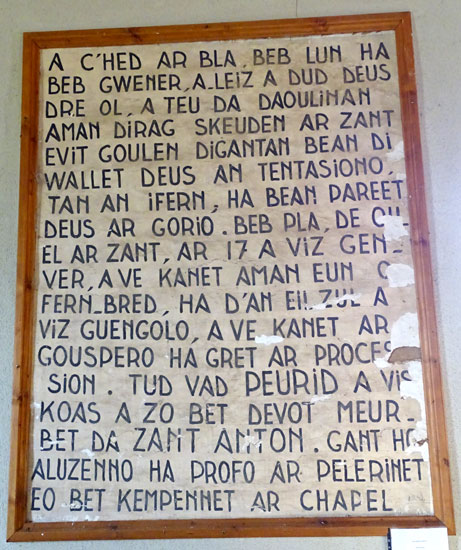 A C'HED AR BLA, BEB LUN HA
BEB GWENER, A-LEIZ A DUD DEUS
DRE OL, A TEU DA DAOULINAN
AMAN DIRAG SKEUDEN AR ZANT
EVIT GOULEN DIGANTAN BEAN DI
WALLET DEUS AN TENTASIONO,
TAN AN iFERN, HA BEAN PAREET
DEUS AR GORIO. BEB PLA, DE
EL AR ZANT, AR 17 A VIZ GEN-
VER, A VE KANET AMAN EUN
FERN-BRED, HA D'AN EIL ZUL A
VIZ GUENGOLO, A VE KANET AR
GOUSPERO HA GRET AR PROCES
SION. TUD VAD PEURID A VIS
KOAS A ZO BET DEVOT MEUR-
BET DA ZANT ANTON. GANT HO
ALUZENNO HA PROFO AR PELERINET
EO BET KEMPENNET AR CHAPEL